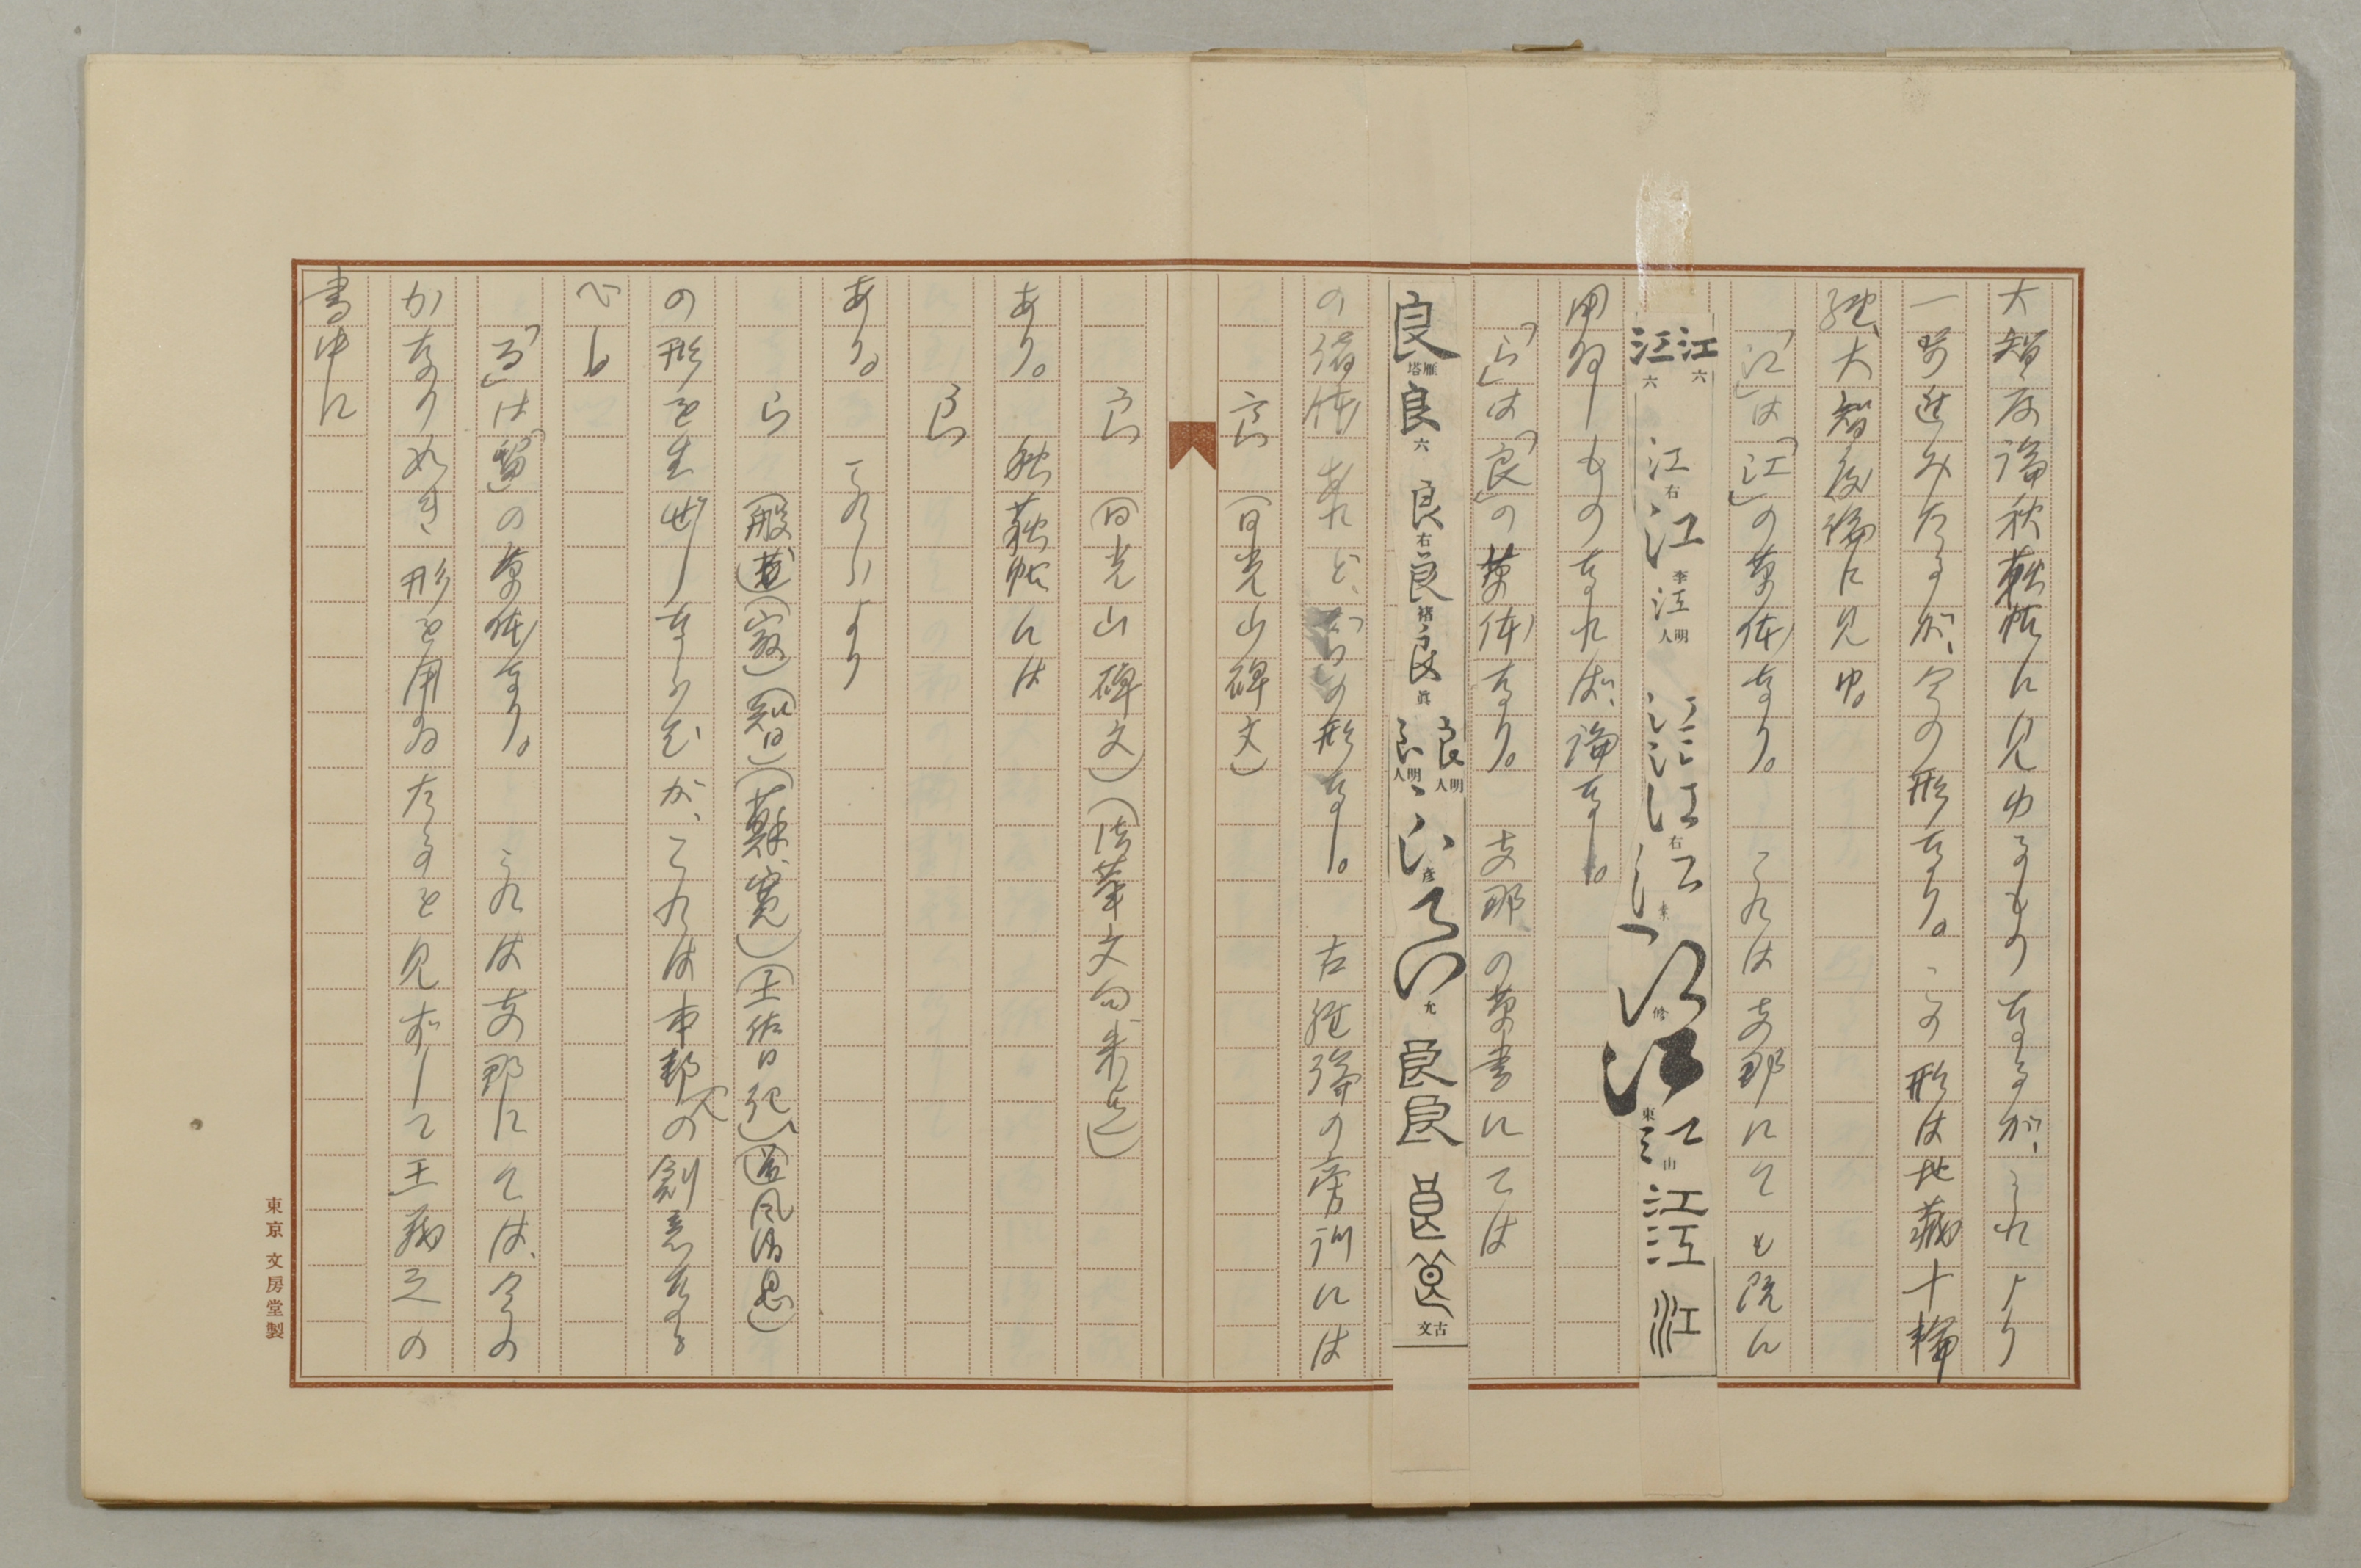 大智度論秋萩帖に見ゆるものなるが、これより
一歩進みたるが、今の形なり。この形は地蔵十輪
経、大智度論に見ゆ。
「江」は「江」の草体なり。これは支那にても既に
江江 六 六 江 右 江 李 江 明人 江江江 右 江 素 江 修 江 東 江 山 江江 江
用ゐしものなれば、論なし。
「ら」は「良」の草体なり。支那の草書にては
良 雁塔 良 六 良 右 良 褚 良 真 良 明人 良 明人 良 彦 良 允 良良 良良 古文
の諸体あれど、「ら」の形なし。古経論の旁訓には
良 (日光山碑文)
良 (日光山碑文)(法華文句未迄)
あり。秋萩帖には
良
あり。これらより
ら (般遮)(寂)(知日)(蘇、寛)(土佐日記)(道風消息)
の形を生ぜしならむが、これは本邦人の創意なる
べし
「る」は「留」の草体なり。これは支那にては、今の
かなの如き形を用ゐたるを見ずして王羲之の
書中に
東京 文房堂製